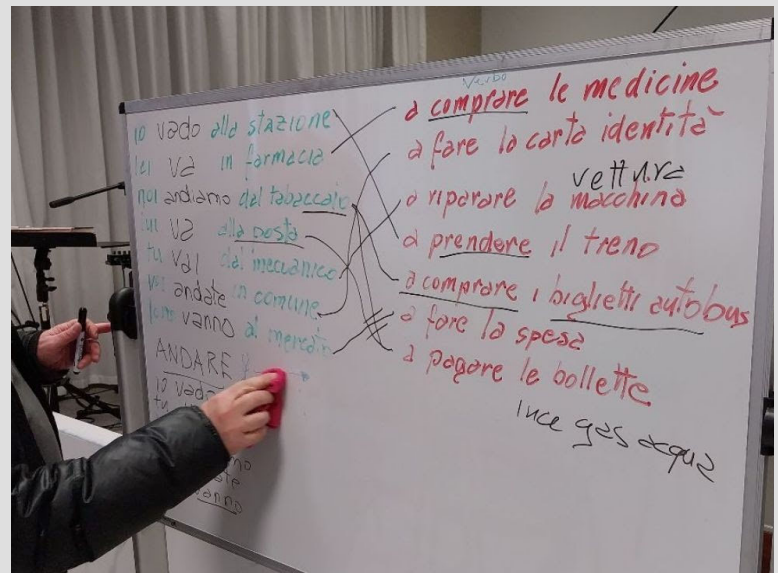 io vado alla STAZIONE
lei va in farmacia
noi andiamo dal tabaccaio
lui va alla posta
tu vai dal meccanico
voi andate in comune
loro vanno al mercato
ANDARE
io vado
vanno
Verbo
a comprare le medicine
a fare la carta identità
vettura
a riparare la macchina
a prendere il treno
a comprare i biglietti autobus
a fare la spesa
a pagare le bollette
luce gas acqua